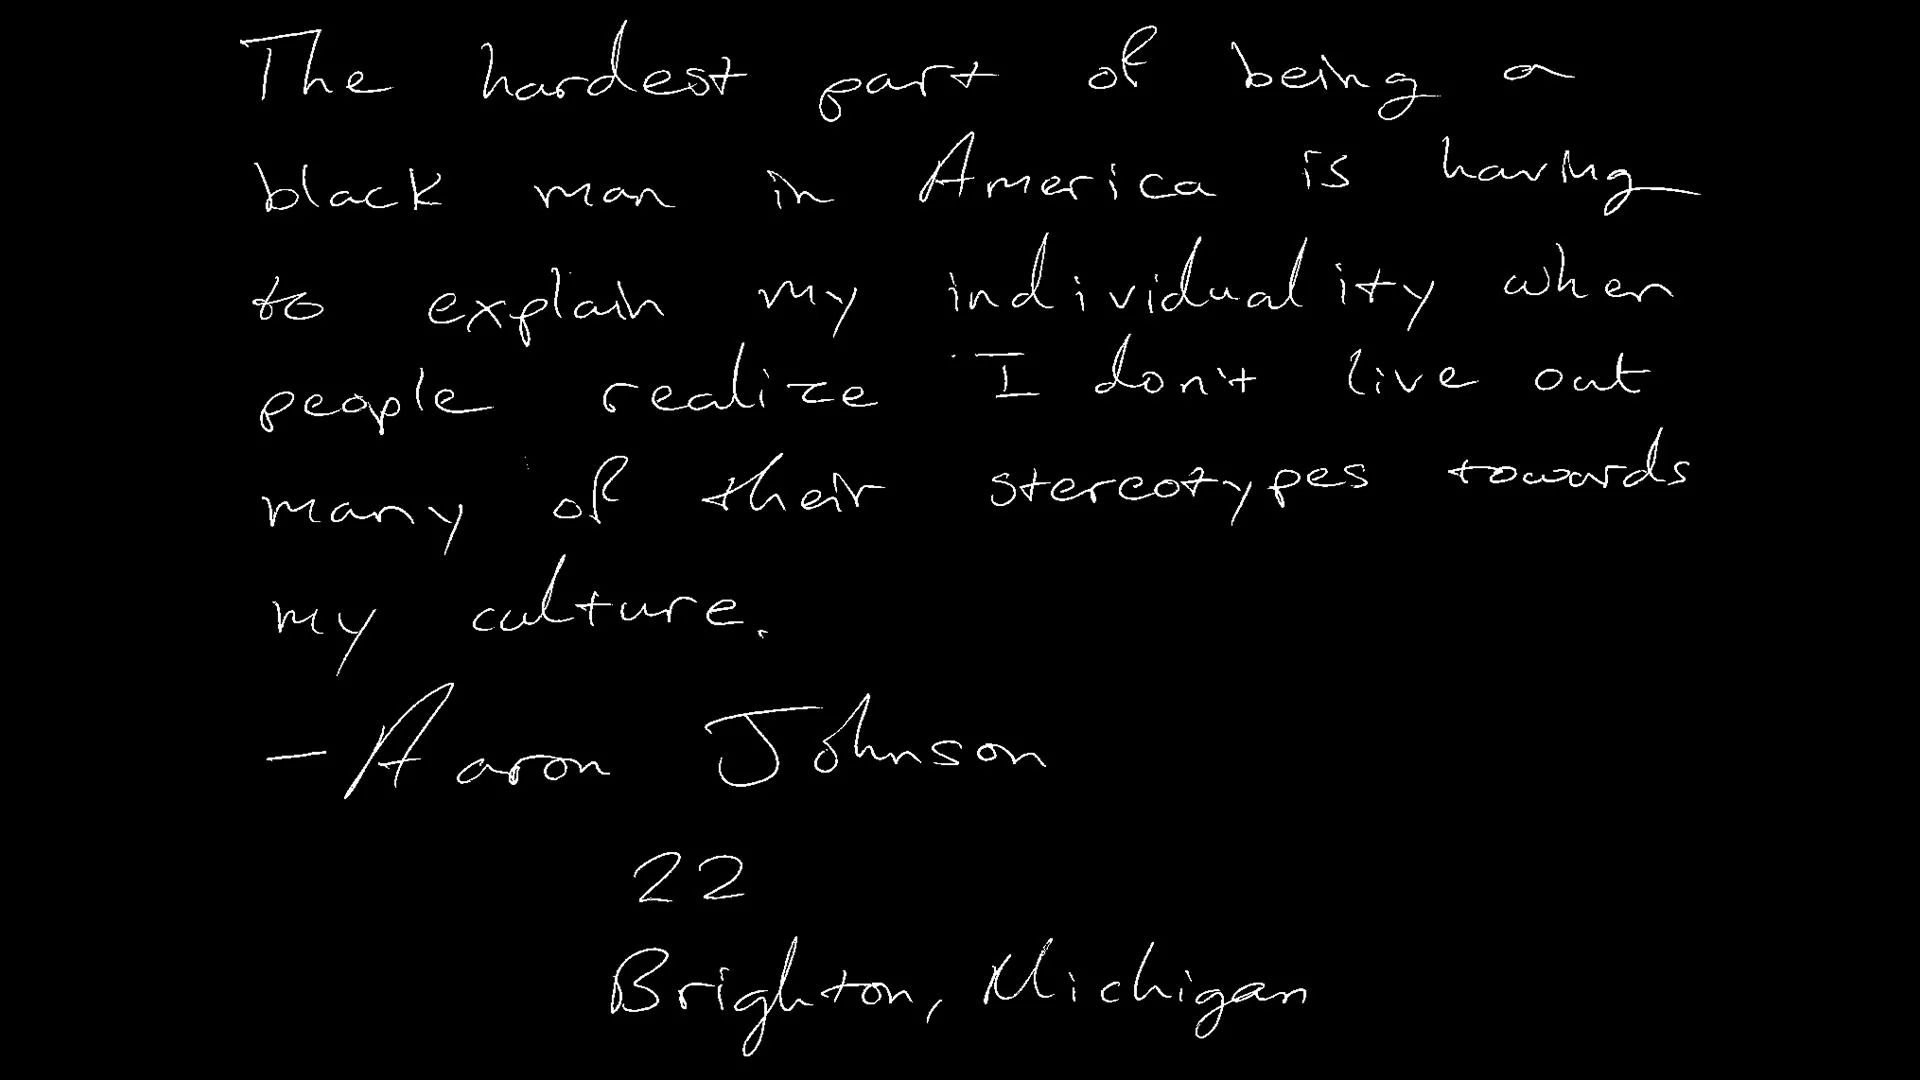 The hardest part of being a
black man in America is having
to explain my individuality when
people realize I don't live out
many of their stereotypes towards
my culture.
- Aaron Johnson
22
Brighton, Michigan